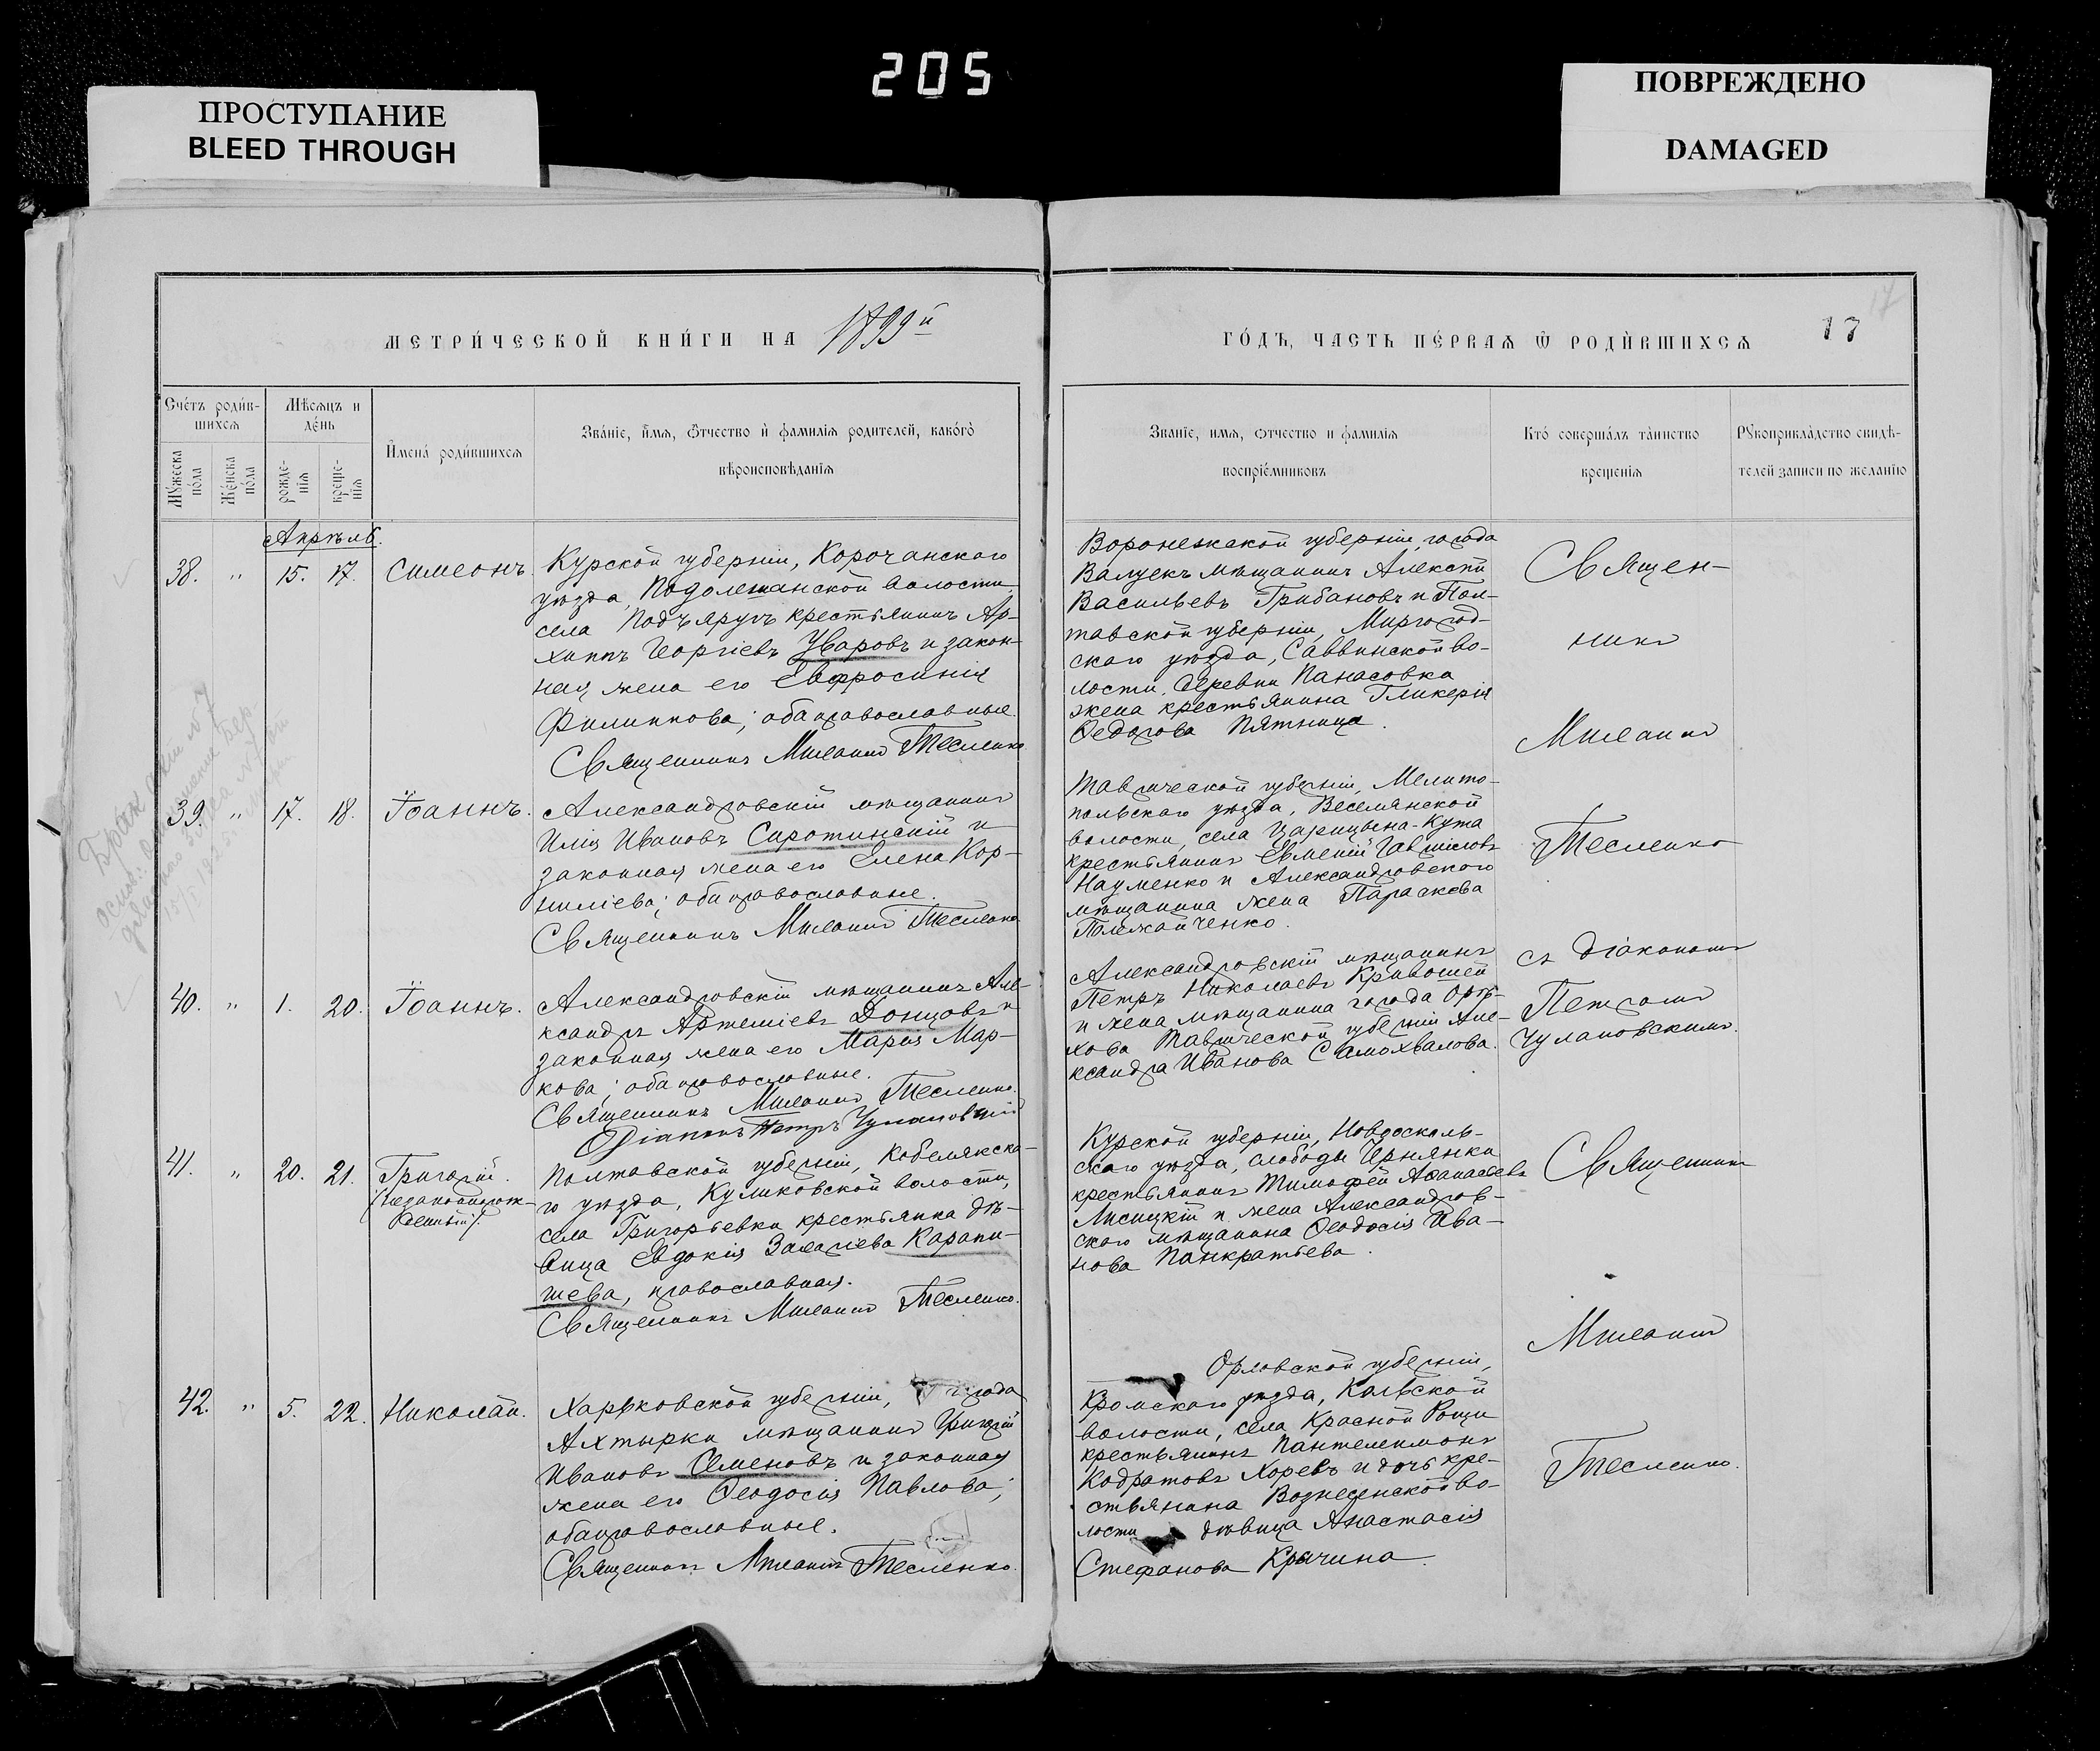 205
ПРОСТУПАНИЕ
BLEED THROUGH
ПОВРЕЖДЕНО
DAMAGED
МЕТРИ́ЧЕСКОЙ КНИ́ГИ НА 1899й
ГО́ДЪ, ЧАСТЬ ПЕ́РВАѦ Ѿ РОДИ́ВШИХСѦ
17
Сче́тъ роди́в-
шихсѧ
Мѣсѧцъ и
де́нь
Му́жеска
по́ла
Же́нска
по́ла
рожде-
нїѧ
креще-
нїѧ
Имена́ роди́вшихсѧ
Зва́нїе, и́мѧ, ѻ́тчество и҆ фамилїѧ родителей, како́гѡ
вѣроисповѣданїѧ
Званїе, имѧ, ѻтчество и фамилїѧ
воспрїе́мниковъ
Кто́ соверша́лъ та́инство
креще́нїѧ
Рꙋкоприкла́дство свидѣ́-
телей записи по желанїю
Апрѣль.
38. " 15. 17. Симеонъ.
Курской губерніи, Корочанскаго
уѣзда, Подолешанской волости,
села Подъяругъ крестьянинъ Ар-
хиппъ Георгіевъ Уваровъ и закон-
ная жена его Евфросинія
Филиппова; оба православные.
Священникъ Миланій Тесленко
Воронежской губерніи, города
Валуекъ мѣщанинъ Алексѣй
Васильевъ Грибановъ и Пол-
тавской губерніи, Миргород-
скаго уѣзда, Саввинской во-
лости, деревни Панасовка
жена крестьянина Гликерія
Ѳедорова Пятница.
Священ-
никъ
Миланій
Тесленко
39. " 17. 18. Іоаннъ.
Александровскій мѣщанинъ
Илія Ивановъ Сиротинскій и
законная жена его Елена Кор-
ниліева; оба православные.
Священникъ Миланій Тесленко
Таврической губерніи, Мелито-
польскаго уѣзда, Веселянской
волости, села Царицына-Кута
крестьянинъ Евменій Гавриловъ
Науменко и Александровскаго
мѣщанина жена Параскева
Полежайченко.
40. " 1. 20. Іоаннъ.
Александровскій мѣщанинъ Але-
ксандръ Артеміевъ Донцовъ и
законная жена его Марія Мар-
кова; оба православные.
Священникъ Миланій Тесленко.
Діаконъ Петръ Чулановскій
Александровскій мѣщанинъ
Петръ Николаевъ Кривошей
и жена мѣщанина города Орѣ-
хова Таврической губерніи Але-
ксандра Иванова Самохвалова.
съ діакономъ
Петромъ
Чулановскимъ.
41. " 20. 21. Григорій.
/незаконнорож-
денный/.
Полтавской губерніи, Кобелякска-
го уѣзда, Куликовской волости,
села Григорьевки крестьянка дѣ-
вица Евдокія Захаріева Карапи-
шева, православная.
Священникъ Миланій Тесленко.
Курской губерніи, Новооскаль-
скаго уѣзда, слободы Чернянки
крестьянинъ Тимоѳей Аѳанасіевъ
Лисицкій и жена Александров-
скаго мѣщанина Ѳеодосія Ива-
нова Панкратьева.
Священникъ
Миланій
Тесленко.
42. " 5. 22. Николай.
Харьковской губерніи, города
Ахтырки мѣщанинъ Григорій
Ивановъ Семеновъ и законная
жена его Ѳеодосія Павлова;
оба православные.
Священникъ Миланій Тесленко.
Орловской губерніи,
Кромскаго уѣзда, Коль­ской
волости, села Красной Рощи
крестьянинъ Пантелеимонъ
Кодратовъ Хоревъ и дочь кре-
стьянина Вознесенской во-
лости дѣвица Анастасія
Стефанова Крячина.